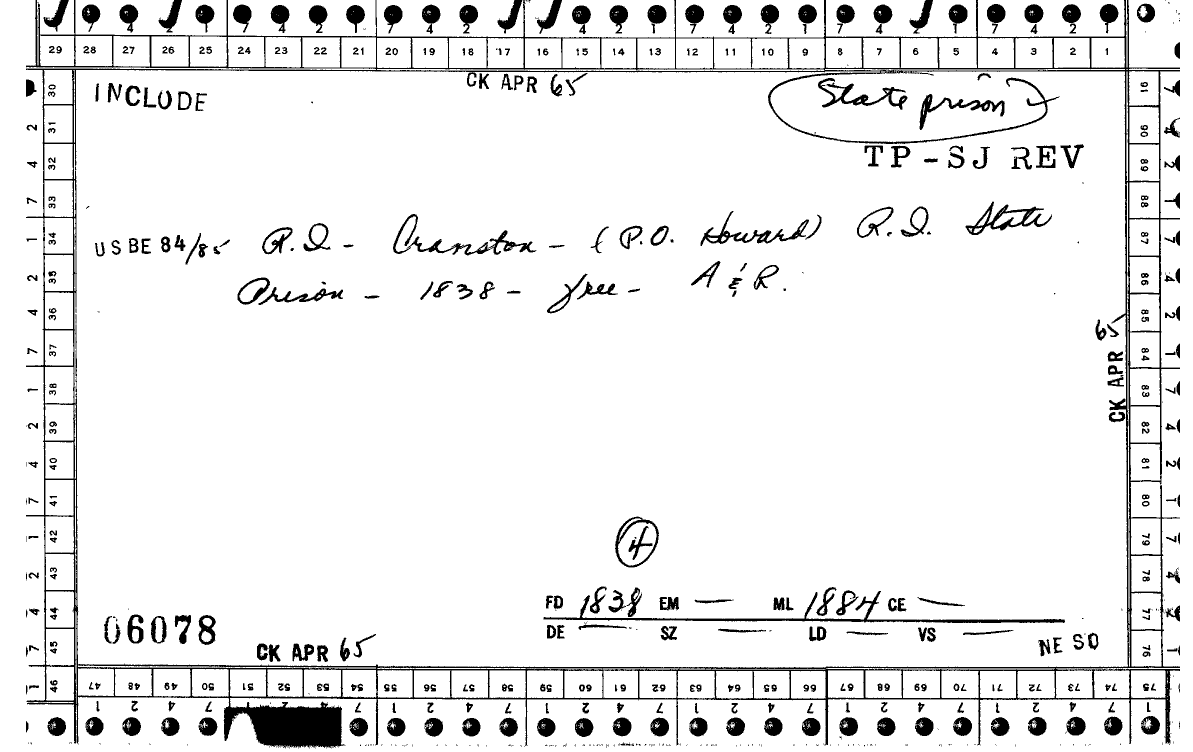 1 7 4 2 1 7 4 2 1 7 4 2 1 7 4 2 1 7 4 2 1 7 4 2 1
29 28 27 26 25 24 23 22 21 20 19 18 17 16 15 14 13 12 11 10 9 8 7 6 5 4 3 2 1
INCLUDE
CK APR 65
State prison
TP-SJ REV
USBE 84/85 R.I. - Cranston - (P.O. Howard) R.I. State
Prison - 1838 - free - A & R.
CK APR 65
4
FD 1838 EM — ML 1884 CE —
DE — SZ — LD — VS —
06078
CK APR 65
NE SO
30 31 32 33 34 35 36 37 38 39 40 41 42 43 44 45 46
91 90 89 88 87 86 85 84 83 82 81 80 79 78 77 76
47 48 49 50 51 52 53 54 55 56 57 58 59 60 61 62 63 64 65 66 67 68 69 70 71 72 73 74 75